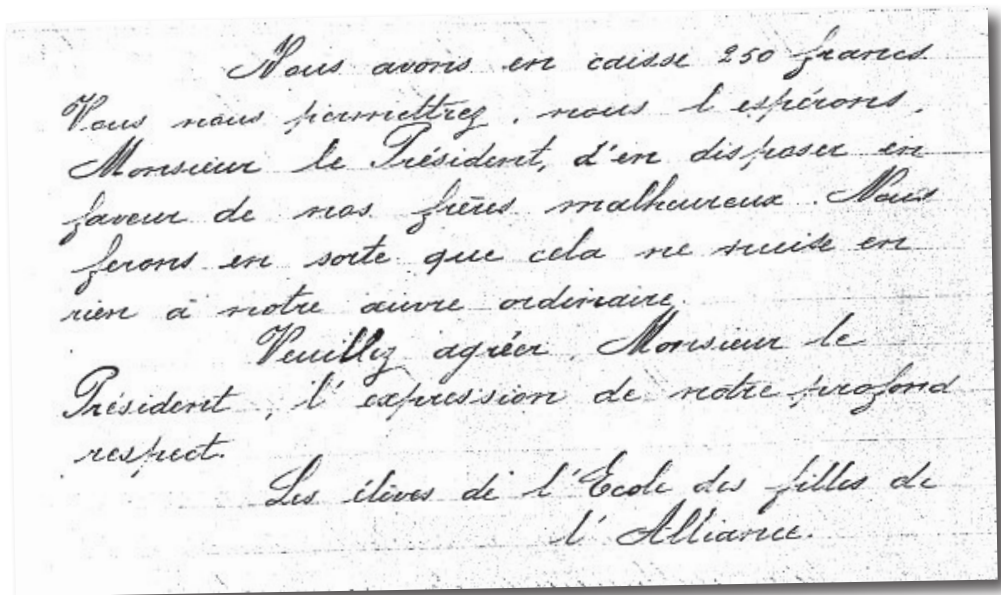 Nous avons en caisse 250 francs.
Vous nous permettrez, nous l'espérons,
Monsieur le Président, d'en disposer en
faveur de nos frères malheureux. Nous
ferons en sorte que cela ne nuise en
rien à notre œuvre ordinaire.
Veuillez agréer, Monsieur le
Président, l'expression de notre profond
respect.
Les élèves de l'Ecole des filles de
l'Alliance.